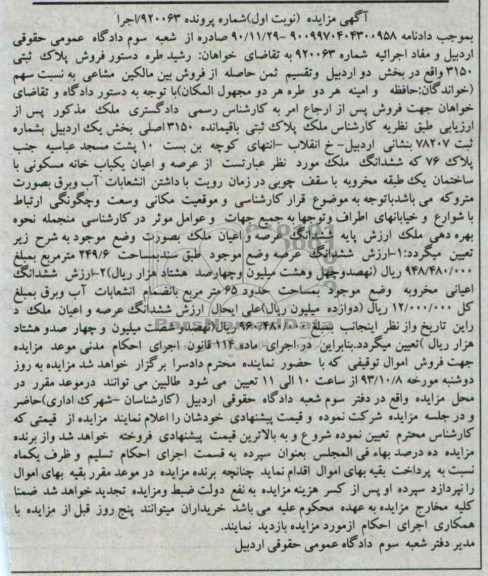 آگهی مزایده (نوبت اول)شماره پرونده ۹۲۰۰۶۳/اجرا
بموجب دادنامه ۹۰۰۹۹۷۰۴۰۴۳۰۰۹۵۸ -۹۰/۱۱/۲۹ صادره از شعبه سوم دادگاه عمومی حقوقی
اردبیل و مفاد اجرائیه شماره ۹۲۰۰۶۳ به تقاضای خواهان: رشید طره دستور فروش پلاک ثبتی
۳۱۵۰ واقع در بخش دو اردبیل وتقسیم ثمن حاصله از فروش بین مالکین مشاعی به نسبت سهم
(خواندگان:حافظه و امینه هر دو طره هر دو مجهول المکان)با توجه به دستور دادگاه و تقاضای
خواهان جهت فروش پس از ارجاع امر به کارشناس رسمی دادگستری ملک مذکور پس از
ارزیابی طبق نظریه کارشناس ملک پلاک ثبتی باقیمانده ۳۱۵۰ اصلی بخش یک اردبیل بشماره
ثبت ۷۸۲۰۷ بنشانی اردبیل- خ انقلاب -انتهای کوچه بن بست ۱۰ پشت مسجد عباسیه جنب
پلاک ۷۶ که ششدانگ ملک مورد نظر عبارتست از عرصه و اعیان یکباب خانه مسکونی با
ساختمان یک طبقه مخروبه با سقف چوبی در زمان رویت با داشتن انشعابات آب وبرق بصورت
متروکه می باشدباتوجه به موضوع قرار کارشناسی و موقعیت مکانی وسعت وچگونگی ارتباط
با شوارع و خیابانهای اطراف وتوجها به جمیع جهات وعوامل موثر در کارشناسی منجمله نحوه
بهره دهی ملک ارزش پایه ششدانگ عرصه واعیان ملک بصورت وضع موجود به شرح زیر
تعیین میگردد:۱-ارزش ششدانگ عرصه وضع موجود طبق سندبمساحت ۲۴۹/۶ مترمربع بمبلغ
۹۴۸/۴۸۰/۰۰۰ ریال (نهصدوچهل وهشت میلیون وچهارصد هشتاد هزار ریال)۲-ارزش ششدانگ
اعیانی مخروبه وضع موجود بمساحت حدود ۶۵ متر مربع بانضمام انشعابات آب وبرق بمبلغ
کل ۱۲/۰۰۰/۰۰۰ ریال (دوازده میلیون ریال)علی ایحال ارزش ششدانگ عرصه و اعیان ملک د
راین تاریخ واز نظر اینجانب بمبلغ ۹۶۰/۴۸۰/۰۰۰ ریال(نهصد وشصت میلیون و چهار صدو هشتاد
هزار ریال )تعیین میگردد.بنابراین در اجرای ماده ۱۱۴ قانون اجرای احکام مدنی موعد مزایده
جهت فروش اموال توقیفی که با حضور نماینده محترم دادسرا برگزار خواهد شد مزایده به روز
دوشنبه مورخه ۹۳/۱۰/۸ از ساعت ۱۰ الی ۱۱ تعیین می شود طالبین می توانند درموعد مقرر در
محل مزایده واقع در دفتر سوم شعبه دادگاه حقوقی اردبیل (کارشناسان -شهرک اداری)حاضر
و در جلسه مزایده شرکت نموده و قیمت پیشنهادی خودشان را اعلام نمایند مزایده از قیمتی که
کارشناس محترم تعیین نموده شروع و به بالاترین قیمت پیشنهادی فروخته خواهد شد واز برنده
مزایده ده درصد بهاء فی المجلس بعنوان سپرده به قسمت اجرای احکام تسلیم و ظرف یکماه
نسبت به پرداخت بقیه بهای اموال اقدام نماید چنانچه برنده مزایده در موعد مقرر بقیه بهای اموال
را نپردازد سپرده او پس از کسر هزینه مزایده به نفع دولت ضبط ومزایده تجدید خواهد شد ضمنا
کلیه مخارج مزایده به عهده محکوم علیه می باشد خریداران میتوانند پنج روز قبل از مزایده با
همکاری اجرای احکام ازمورد مزایده بازدید نمایند.
مدیر دفتر شعبه سوم دادگاه عمومی حقوقی اردبیل